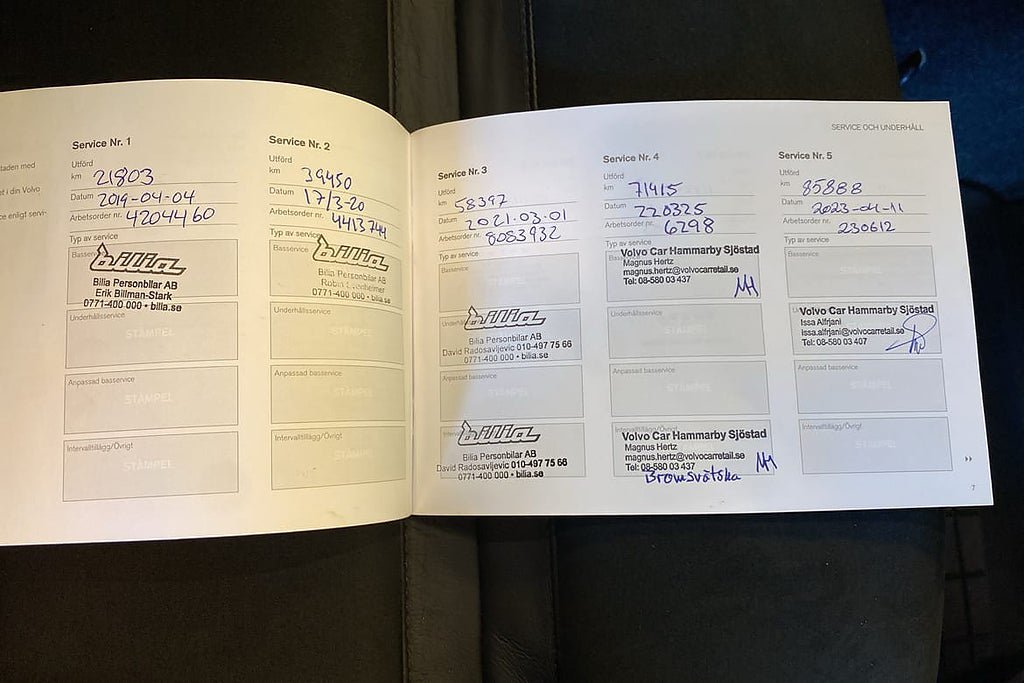 SERVICE OCH UNDERHÅLL
taden med
et i din Volvo
ce enligt servi-
Service Nr. 1
Utförd
km 21803
Datum 2019-04-04
Arbetsorder nr. 4204460
Typ av service
Basservice
bilia
Bilia Personbilar AB
Erik Billman-Stark
0771-400 000 • bilia.se
Underhållsservice
STÄMPEL
Anpassad basservice
STÄMPEL
Intervalltillägg/Övrigt
STÄMPEL
Service Nr. 2
Utförd
km 39450
Datum 17/3-20
Arbetsorder nr. 4413744
Typ av service
Basservice
bilia
Bilia Personbilar AB
Robin
0771-400 000 • bilia.se
Underhållsservice
STÄMPEL
Anpassad basservice
STÄMPEL
Intervalltillägg/Övrigt
STÄMPEL
Service Nr. 3
Utförd
km 58397
Datum 2021.03.01
Arbetsorder nr. 8083932
Typ av service
Basservice
STÄMPEL
bilia
Bilia Personbilar AB
David Radosavljevic 010-497 75 66
0771-400 000 • bilia.se
Anpassad basservice
STÄMPEL
bilia
Bilia Personbilar AB
David Radosavljevic 010-497 75 66
0771-400 000 • bilia.se
Service Nr. 4
Utförd
km 71415
Datum 220325
Arbetsorder nr. 6298
Typ av service
Volvo Car Hammarby Sjöstad
Magnus Hertz
magnus.hertz@volvocarretail.se
Tel: 08-580 03 437
MH
Underhållsservice
STÄMPEL
Anpassad basservice
STÄMPEL
Intervalltillägg/Övrigt
Volvo Car Hammarby Sjöstad
Magnus Hertz
magnus.hertz@volvocarretail.se
Tel: 08-580 03 437
MH
Bromsvätska
Service Nr. 5
Utförd
km 85888
Datum 2023-04-11
Arbetsorder nr. 230612
Typ av service
Basservice
STÄMPEL
Volvo Car Hammarby Sjöstad
Issa Alfrjani
issa.alfrjani@volvocarretail.se
Tel: 08-580 03 407
Anpassad basservice
STÄMPEL
Intervalltillägg/Övrigt
STÄMPEL
7